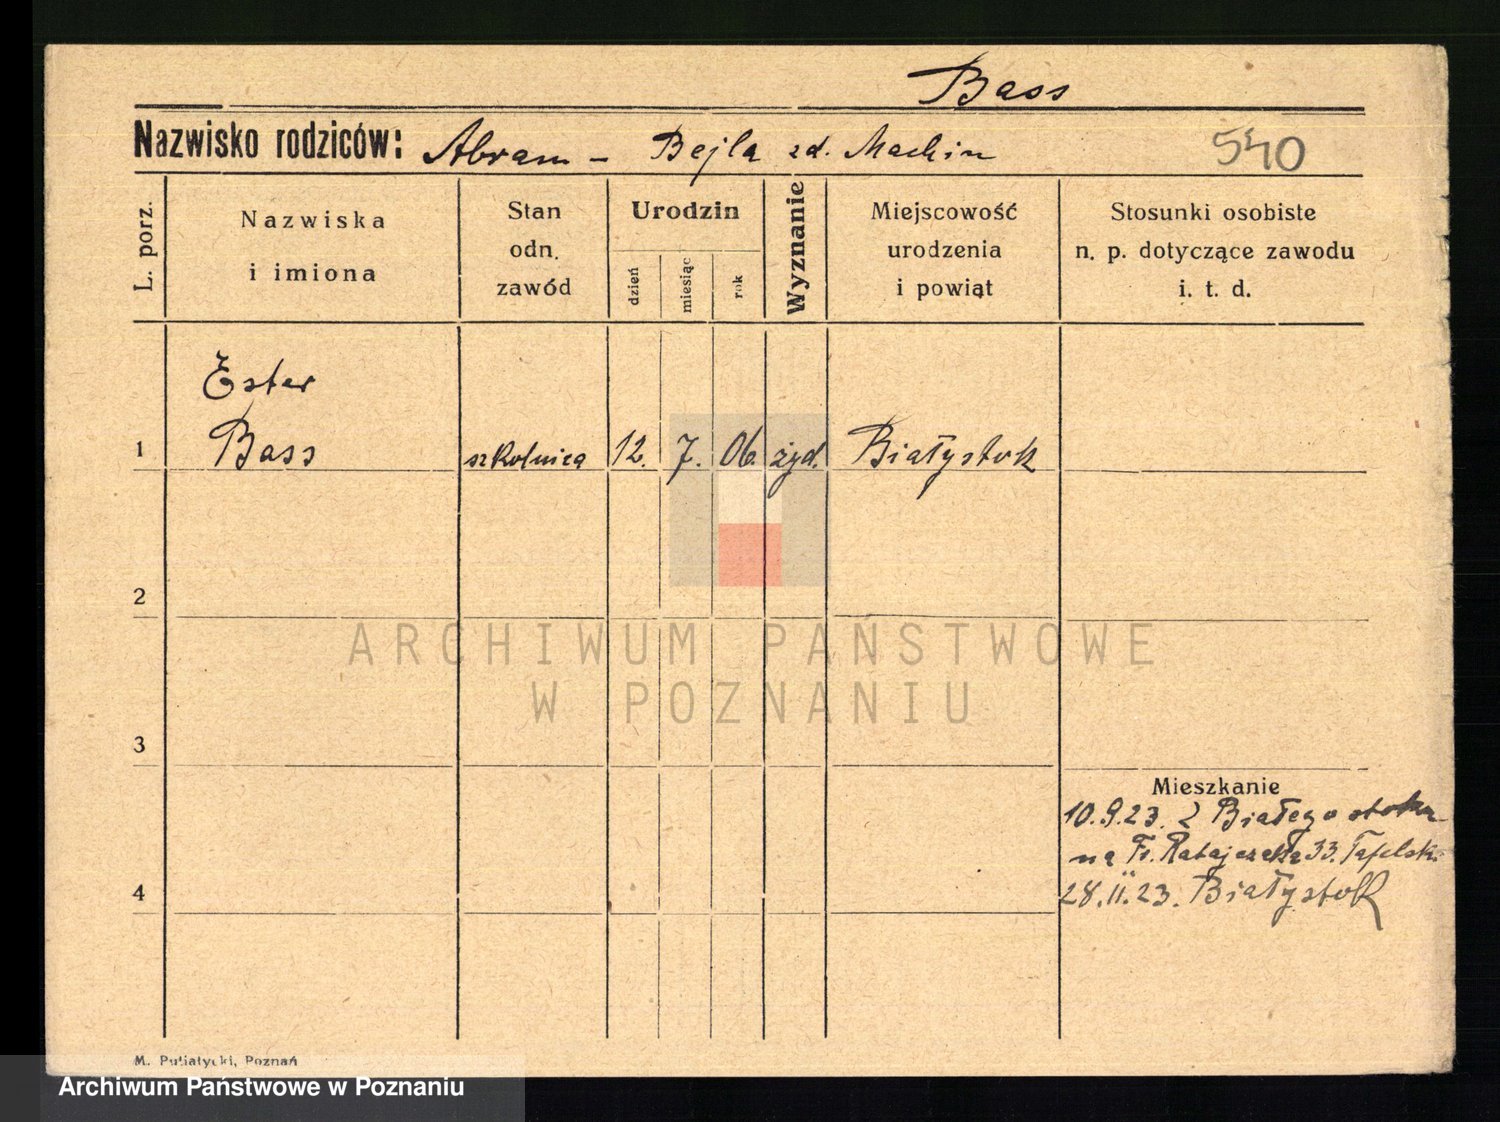 Bass
Nazwisko rodziców: Abram – Bejla zd. Machin
540
L. porz.
Nazwiska
i imiona
Stan
odn.
zawód
Urodzin
dzień
miesiąc
rok
Wyznanie
Miejscowość
urodzenia
i powiąt
Stosunki osobiste
n. p. dotyczące zawodu
i. t. d.
Ester
1 Bass szkolnica 12. 7. 06. żyd. Białystok
2
ARCHIWUM PAŃSTWOWE
W POZNANIU
3
Mieszkanie
10.9.23. z Białegostoku
na Fr. Ratajczaka 33.
4
28.II.23. Białystok
M. Putiatycki, Poznań
Archiwum Państwowe w Poznaniu